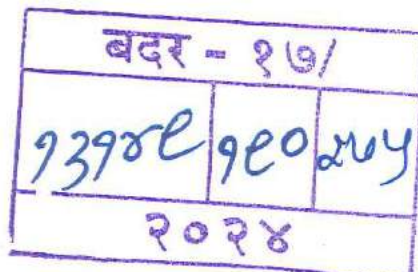 बदर - १७/
१३१४९ १९०
२०२४